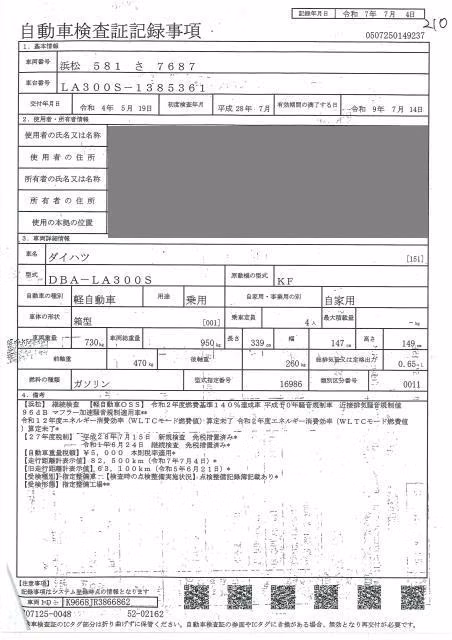 記録年月日 令和 7年 7月 4日
210
自動車検査証記録事項
0507250149237
1. 基本情報
車両番号 浜松 581 さ 7687
車台番号 LA300S-1385361
交付年月日 令和 4年 5月 19日 初度検査年月 平成 28年 7月 有効期間の満了する日 令和 9年 7月 14日
2. 使用者・所有者情報
使用者の氏名又は名称
使用者の住所
所有者の氏名又は名称
所有者の住所
使用の本拠の位置
3. 車両詳細情報
車名 ダイハツ [151]
型式 DBA-LA300S 原動機の型式 KF
自動車の種別 軽自動車 用途 乗用 自家用・事業用の別 自家用
車体の形状 箱型 [001] 乗車定員 4人 最大積載量 -kg
車両重量 730kg 車両総重量 950kg 長さ 339cm 幅 147cm 高さ 149cm
前軸重 470kg 後軸重 260kg 総排気量又は定格出力 0.65 L
燃料の種類 ガソリン 型式指定番号 16986 類別区分番号 0011
4. 備考
【浜松】 継続検査 【軽自動車OSS】 令和2年度燃費基準140%達成車 平成10年騒音規制車 近接排気騒音規制値
96dB マフラー加速騒音規制適用車**
令和12年度エネルギー消費効率（WLTCモード燃費値）算定未了 令和2年度エネルギー消費効率（WLTCモード燃費値
）算定未了*
【27年度税制】 平成28年7月15日 新規検査 免税措置済み*
令和1年6月24日 継続検査 免税措置済み*
【自動車重量税額】 ¥5,000 本則税率適用*
【走行距離計表示値】 82,500km（令和7年7月4日）*
【旧走行距離計表示値】 63,100km（令和5年6月21日）*
【受検種別】 指定整備車 【検査時の点検整備実施状況】 点検整備記録簿記載あり*
【受検形態】 指定整備工場**
【注意事項】
記録事項はシステム登録時点の情報となります
車両ID K9668JR3866862
707125-0048 52-02162
車検査証のICタグ部分は折り曲げずに保管ください。自動車検査証の券面やICタグに合格がある場合、無効となり再交付が必要です。